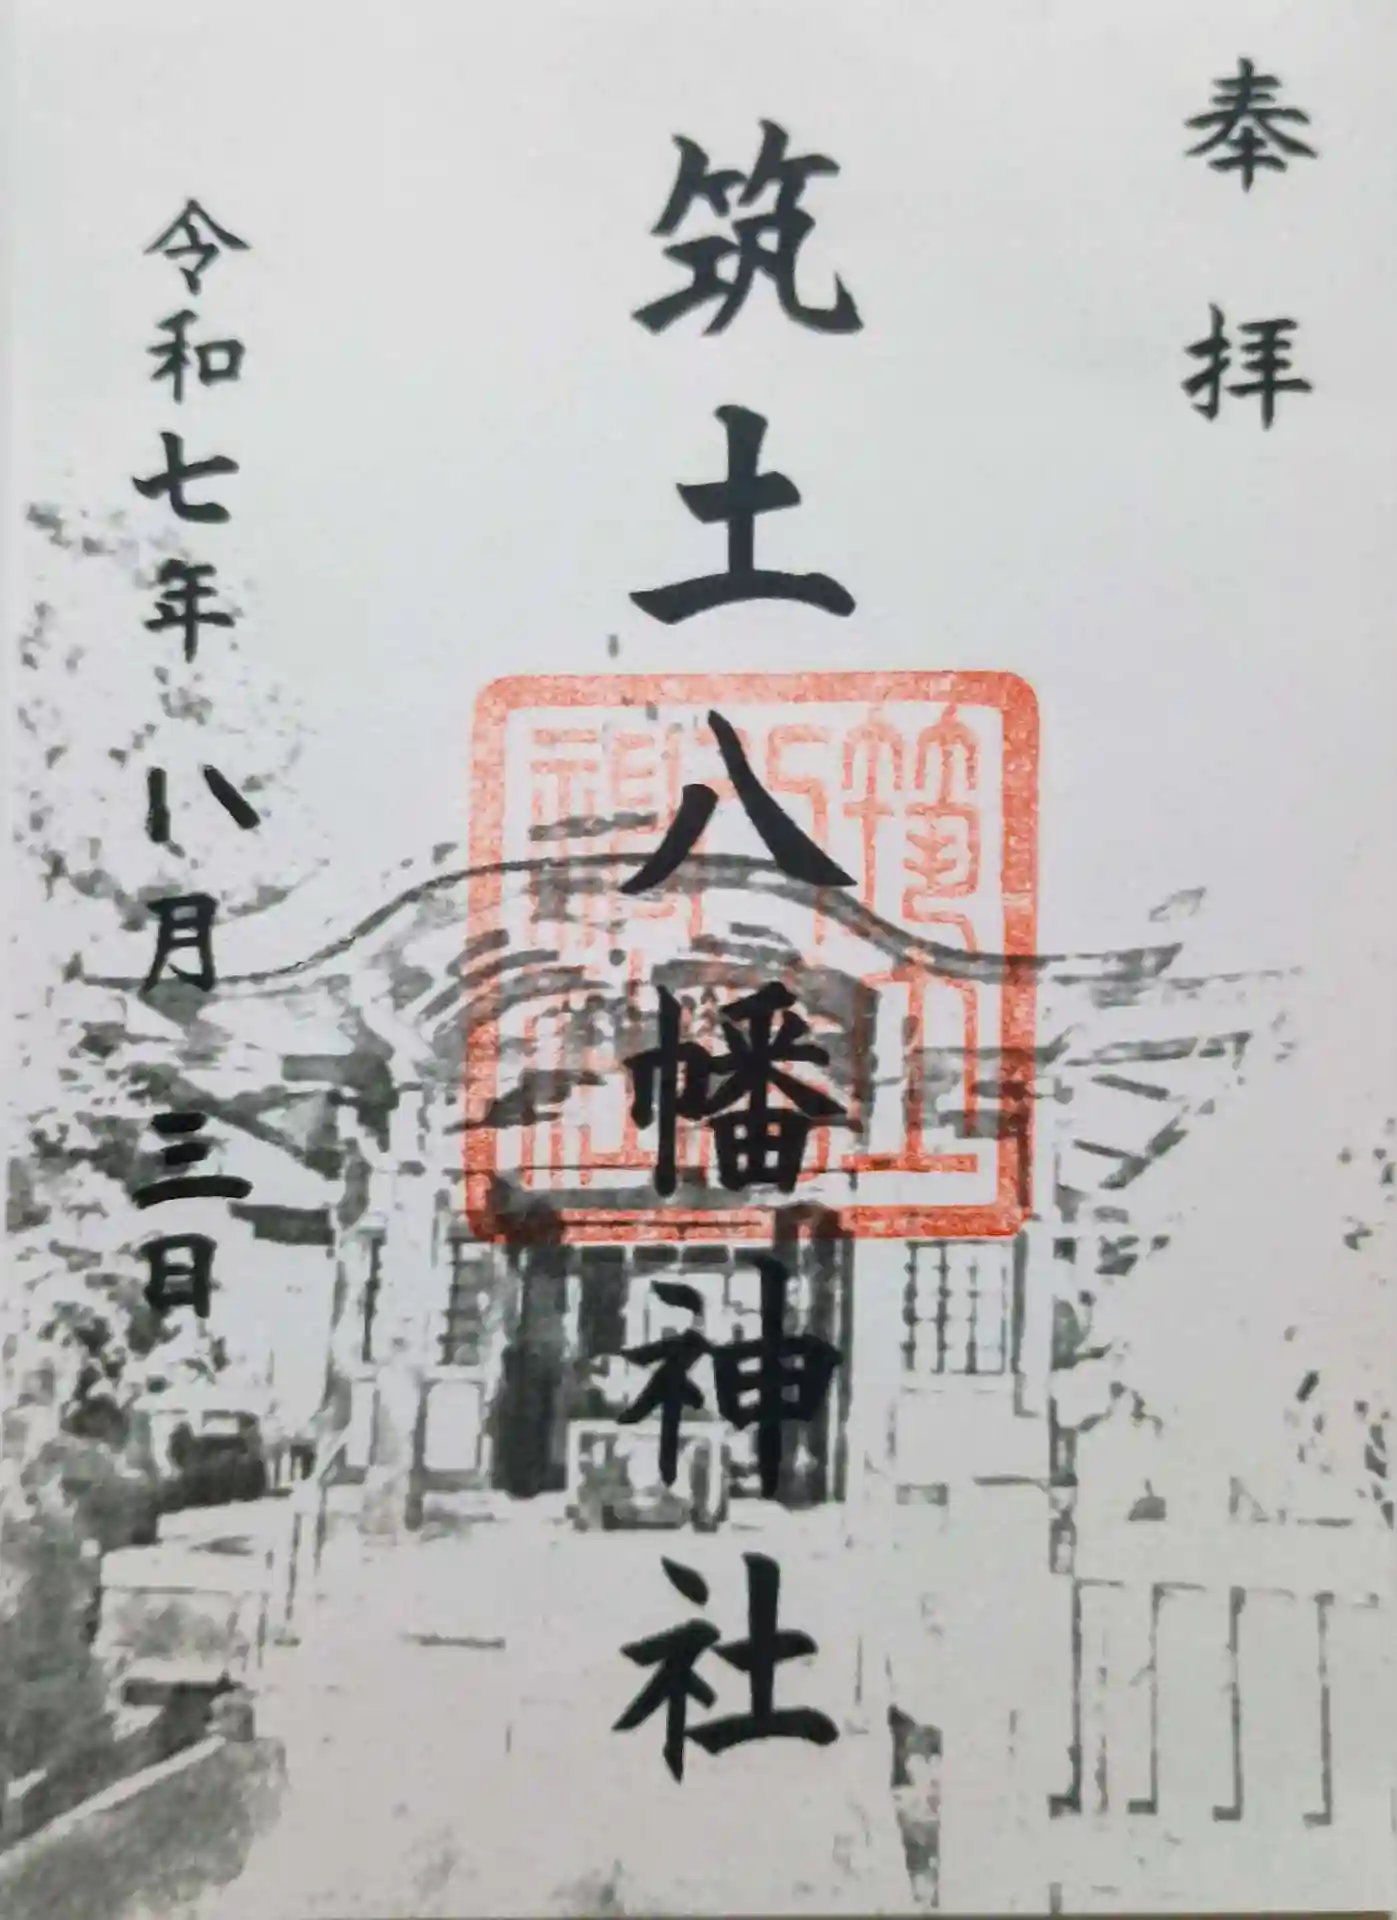 奉拝
筑土八幡神社
令和七年八月三日